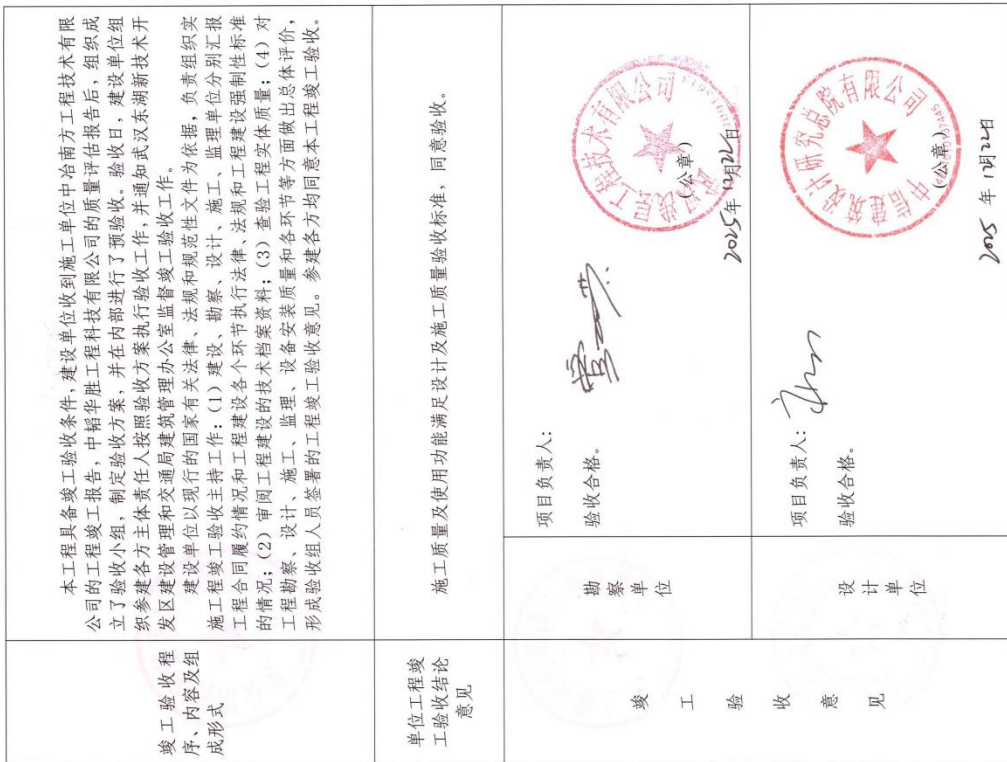 竣工验收程
序、内容及组
成形式
本工程具备竣工验收条件，建设单位收到施工单位中冶南方工程技术有限
公司的工程竣工报告，中韬华胜工程科技有限公司的质量评估报告后，组织成
立了验收小组，制定验收方案，并在内部进行了预验收。验收日，建设单位组
织参建各方主体责任人按照验收方案执行验收工作，并通知武汉东湖新技术开
发区建设管理和交通局建筑管理办公室监督竣工验收工作。
建设单位以现行的国家有关法律、法规和规范性文件为依据，负责组织实
施工程竣工验收主持工作：（1）建设、勘察、设计、施工、监理单位分别汇报
工程合同履约情况和工程建设各个环节执行法律、法规和工程建设强制性标准
的情况；（2）审阅工程建设的技术档案资料；（3）查验工程实体质量；（4）对
工程勘察、设计、施工、监理、设备安装质量和各环节等方面做出总体评价，
形成验收组人员签署的工程竣工验收意见。参建各方均同意本工程竣工验收。
单位工程竣
工验收结论
意见
施工质量及使用功能满足设计及施工质量验收标准，同意验收。
竣工验收意见
勘察单位
项目负责人：
验收合格。
工程技术有限公司
（公章）
2025年12月22日
设计单位
项目负责人：
验收合格。
中信建筑设计研究总院有限公司
（公章）
2025 年 12月22日